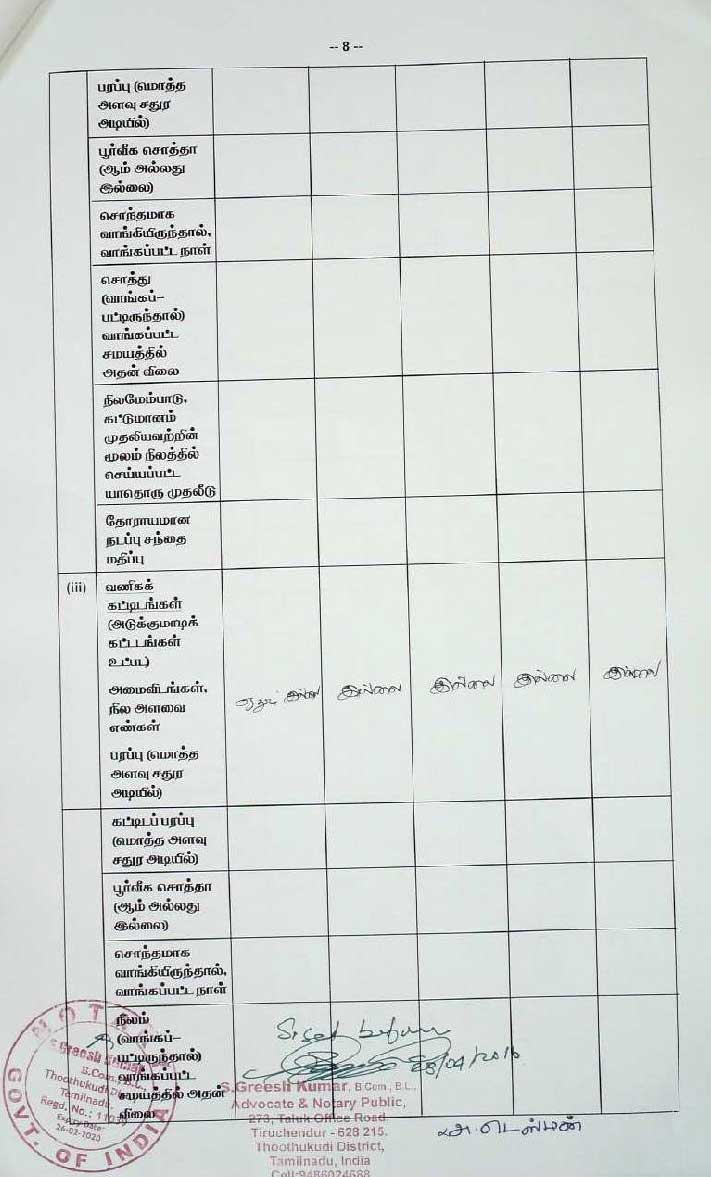 -- 8 --
பரப்பு (மொத்த
அளவு சதுர
அடியில்)
பூர்வீக சொத்தா
(ஆம் அல்லது
இல்லை)
சொந்தமாக
வாங்கியிருந்தால்,
வாங்கப்பட்ட நாள்
சொத்து
(வாங்கப்–
பட்டிருந்தால்)
வாங்கப்பட்ட
சமயத்தில்
அதன் விலை
நிலமேம்பாடு,
கட்டுமானம்
முதலியவற்றின்
மூலம் நிலத்தில்
செய்யப்பட்ட
யாதொரு முதலீடு
தோராயமான
நடப்பு சந்தை
மதிப்பு
(iii) வணிகக்
கட்டிடங்கள்
(அடுக்குமாடிக்
கட்டடங்கள்
உட்பட)
அமைவிடங்கள், இல்லை இல்லை இல்லை இல்லை
நில அளவை
எண்கள்
பரப்பு (மொத்த
அளவு சதுர
அடியில்)
கட்டிடப் பரப்பு
(மொத்த அளவு
சதுர அடியில்)
பூர்வீக சொத்தா
(ஆம் அல்லது
இல்லை)
சொந்தமாக
வாங்கியிருந்தால்,
வாங்கப்பட்ட நாள்
நிலம்
(வாங்கப்–
பட்டிருந்தால்)
வாங்கப்பட்ட
சமயத்தில் அதன்
விலை
NOTARY
S.Greesh Kumar
B.Com., B.L.,
Thoothukudi Dist.
Tamilnadu
Regd. No.:
Expiry Date:
26-02-2020
GOVT. OF INDIA
S.Greesh Kumar, B.Com., B.L.,
Advocate & Notary Public,
273, Taluk Office Road
Tiruchendur - 628 215.
Thoothukudi District,
Tamilnadu, India
Cell:9486024688